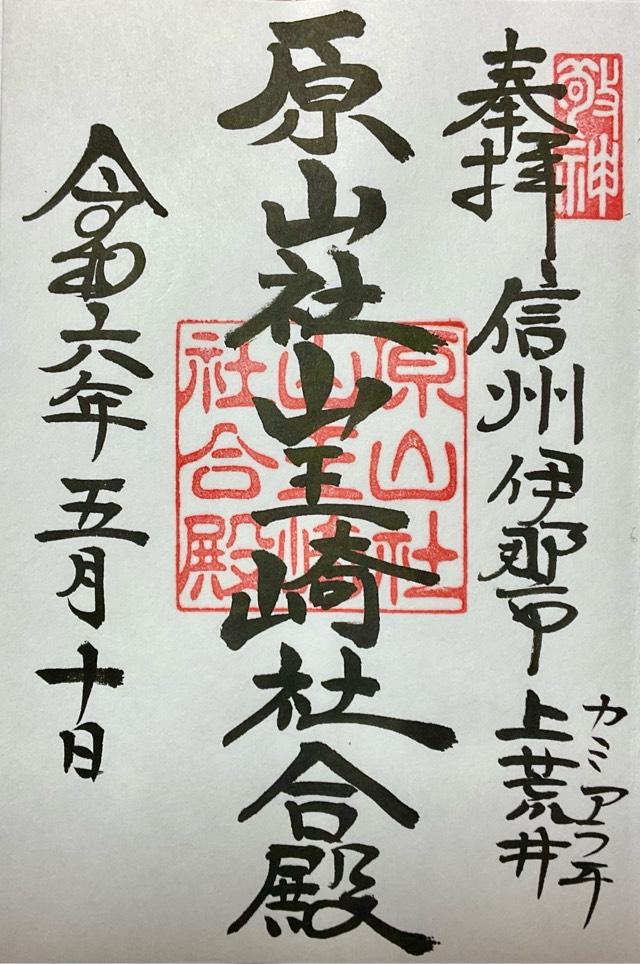 敬神
奉拝
信州伊那市上荒井
カミアライ
原山社山王崎社合殿
原山社
山王崎
社合殿
令和六年五月十日